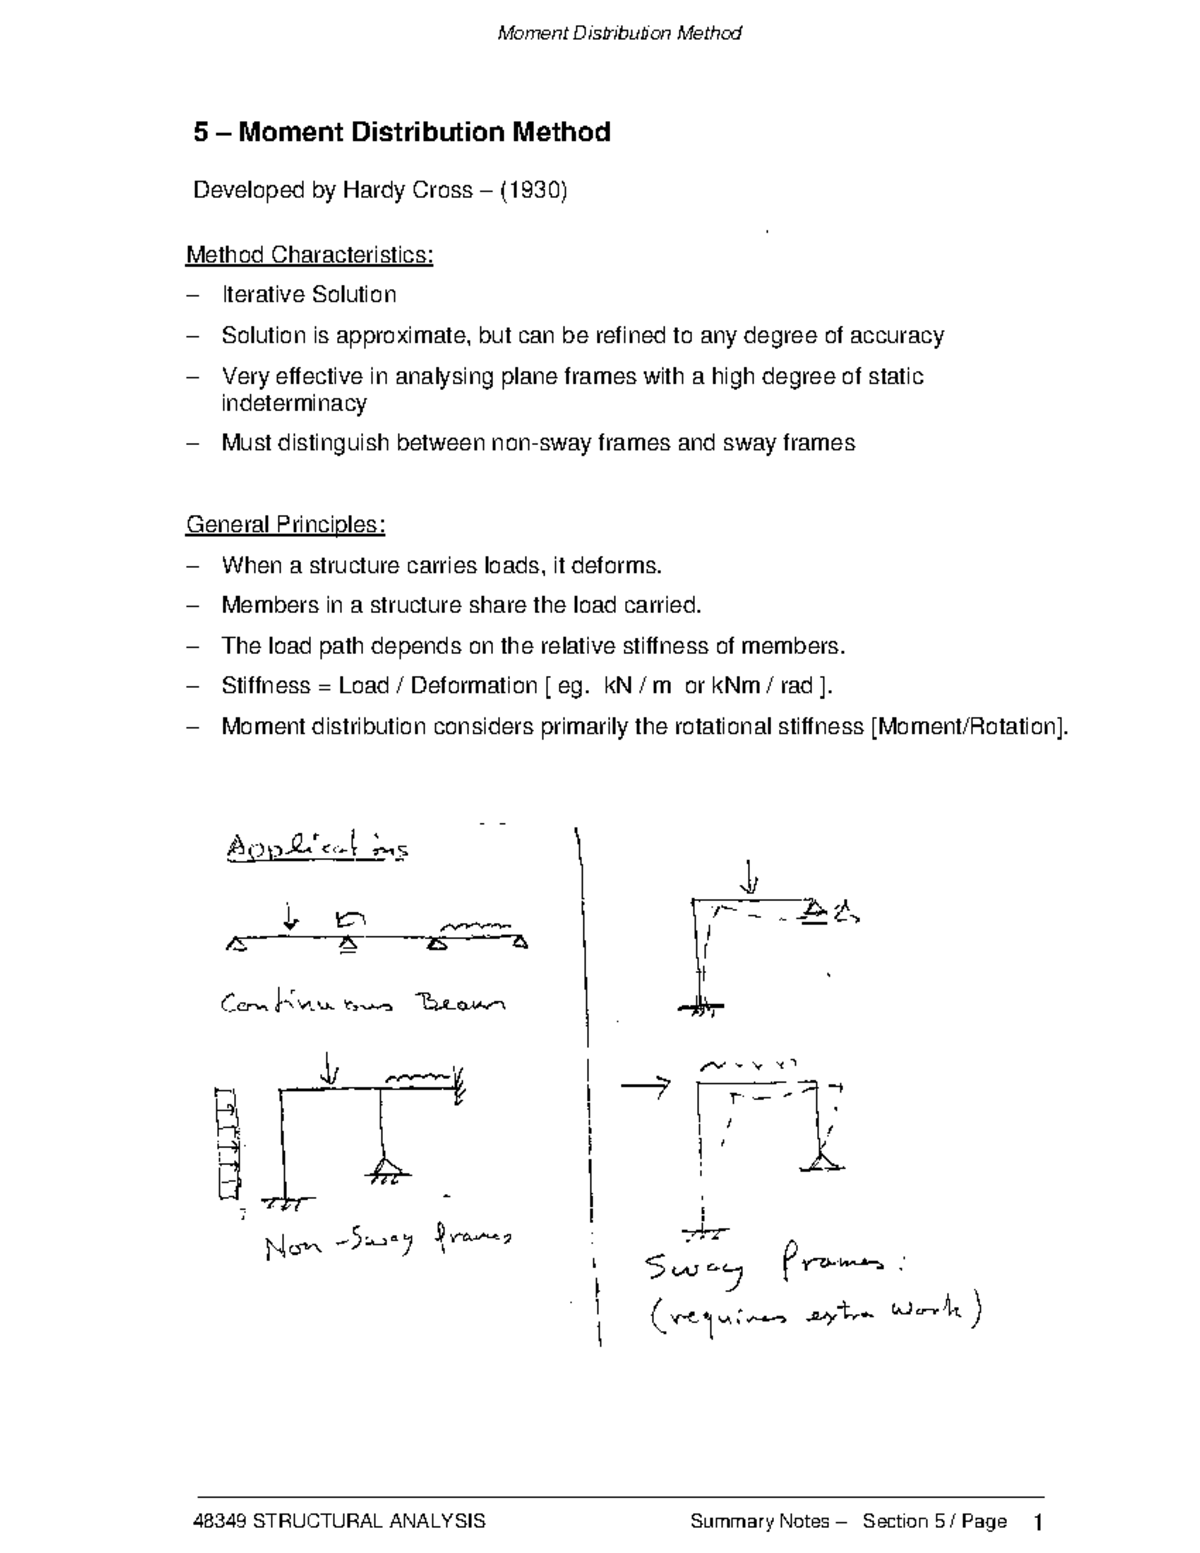 Moment Distribution Method
5 – Moment Distribution Method
Developed by Hardy Cross – (1930)
Method Characteristics:
– Iterative Solution
– Solution is approximate, but can be refined to any degree of accuracy
– Very effective in analysing plane frames with a high degree of static
indeterminacy
– Must distinguish between non-sway frames and sway frames
General Principles:
– When a structure carries loads, it deforms.
– Members in a structure share the load carried.
– The load path depends on the relative stiffness of members.
– Stiffness = Load / Deformation [ eg. kN / m or kNm / rad ].
– Moment distribution considers primarily the rotational stiffness [Moment/Rotation].
Applications
Continuous Beam
Non-Sway frames
Sway Frames:
(requires extra work)
48349 STRUCTURAL ANALYSIS Summary Notes – Section 5 / Page 1